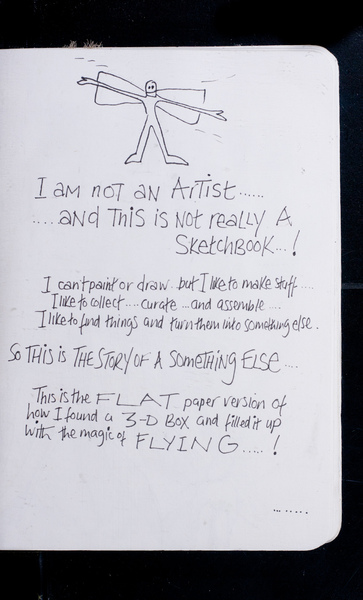 I AM NOT AN ARTIST......
....AND THIS IS NOT REALLY A
SKETCHBOOK...!
I can't paint or draw.. but I like to make stuff ....
I like to collect.... curate ...and assemble ....
I like to find things and turn them into something else.
SO THIS IS THE STORY OF A SOMETHING ELSE....
This is the FLAT paper version of
how I found a 3-D BOX and filled it up
with the magic of FLYING.....!
......